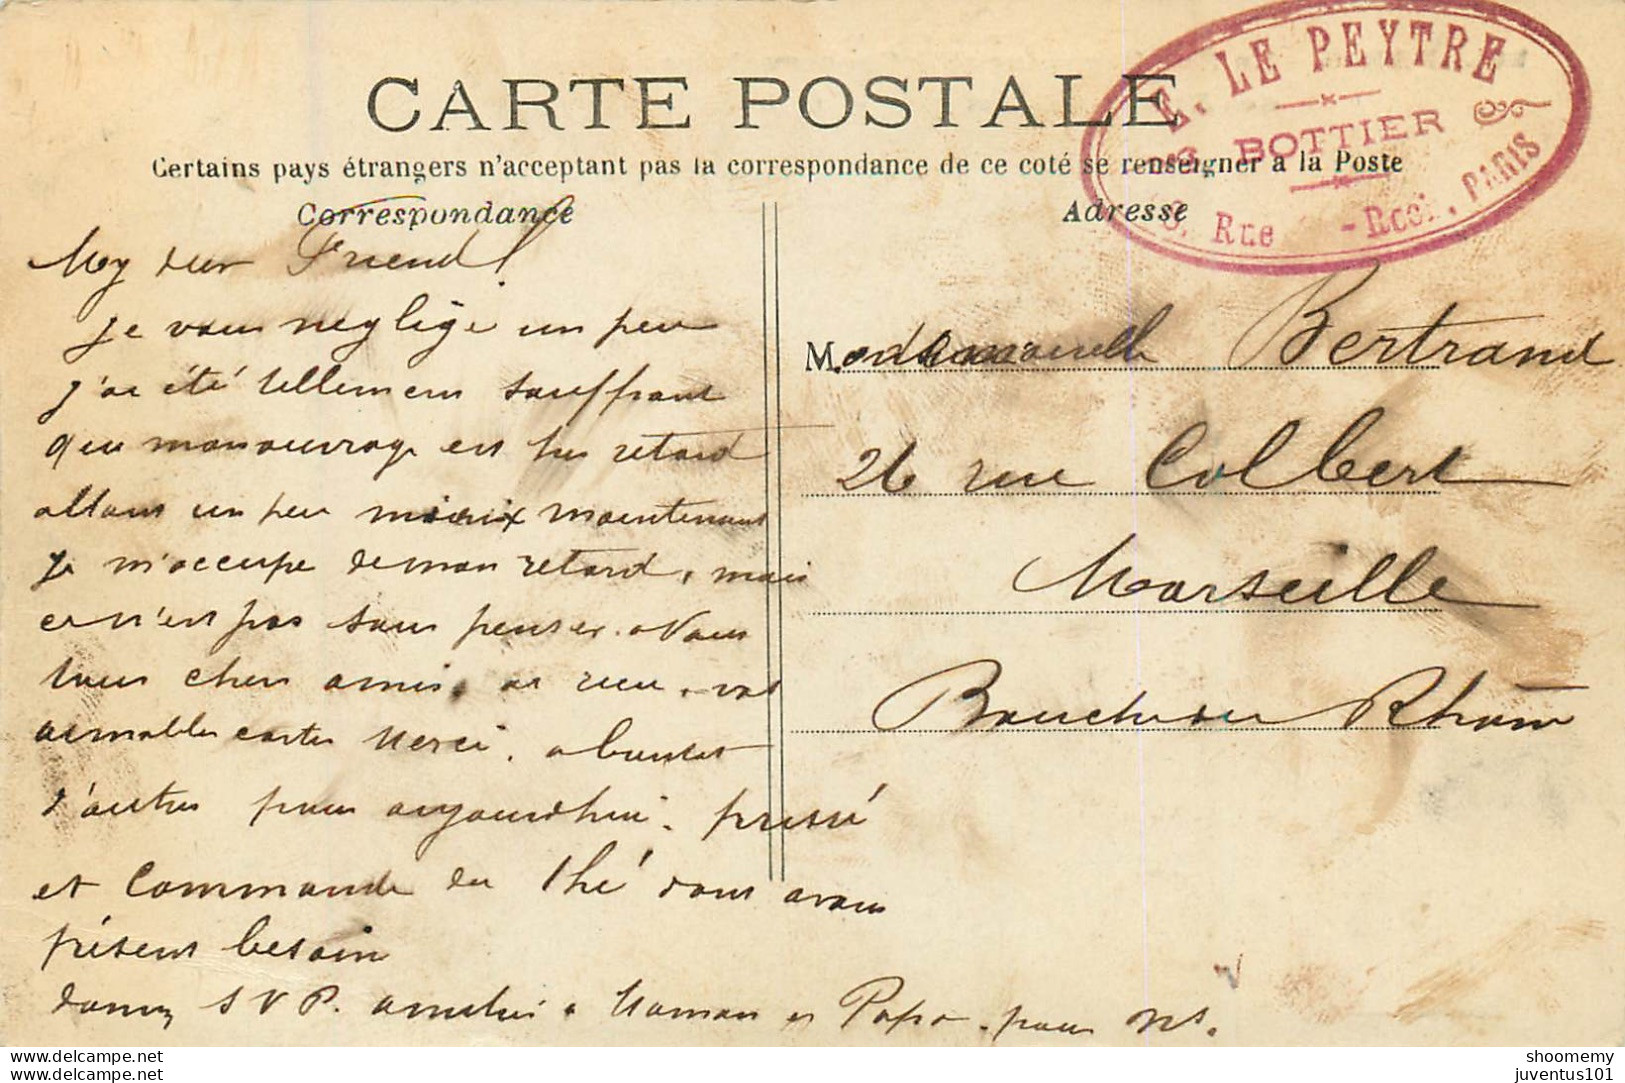 CARTE POSTALE
Certains pays étrangers n'acceptant pas la correspondance de ce coté se renseigner à la Poste
Correspondance
Adresse
E. LE PEYTRE
BOTTIER
Rue - Rcoi, PARIS
My dear Friend!
je vous neglige un peu
j'ai été tellement souffrant
que mon ouvrage est en retard
allant un peu mieux maintenant
je m'occupe de mon retard, mais
ce n'est pas sans penser à Vous
tous chers amis, ai reçu vos
aimables cartes Merci. a bientot
d'autres pour aujourdhui. pressé
et Commande du thé dont avons
présent besoin
donnez S V P. amitiés à Maman et Papa. pour ns.
Mademoiselle Bertrand
26 rue Colbert
Marseille
Bouches du Rhône
shoomemy
juventus101
delcampe.net
delcampe.net